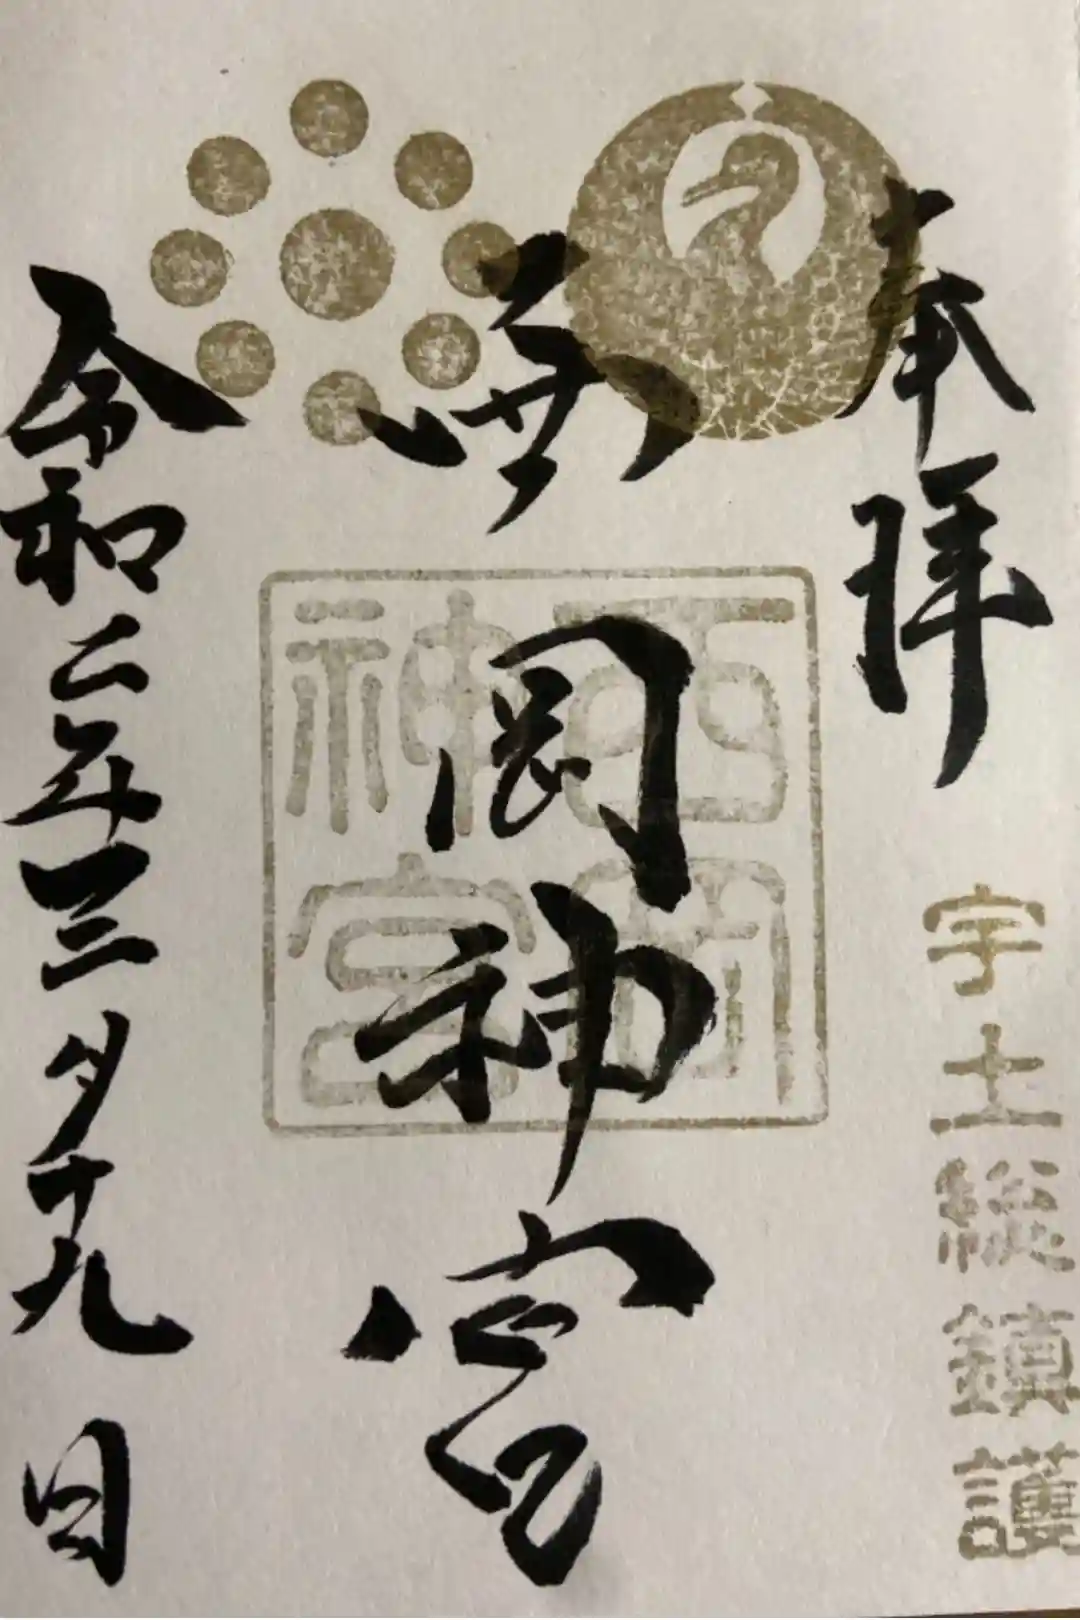 奉拝
宇土総鎮護
西岡神宮
西岡神宮
令和二年三月十九日